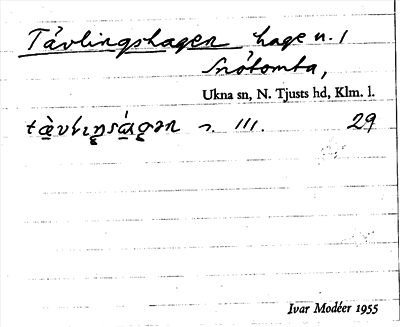 Tävlingshagen hage u. 1
Snötomta,
Ukna sn, N. Tjusts hd, Klm. l.
III. 29
Ivar Modéer 1955